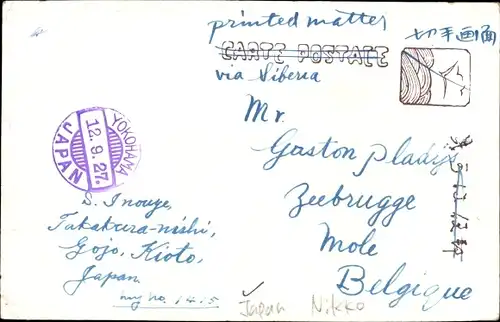 printed matter
切手画面
CARTE POSTALE
via Siberia
Mr.
Gaston pladys
Zeebrugge
Mole
Belgique
YOKOHAMA
12.9.27.
JAPAN
S. Inouye,
Takakura-nishi,
Gojo, Kioto,
Japan
my no. 1415
Japan Nikko